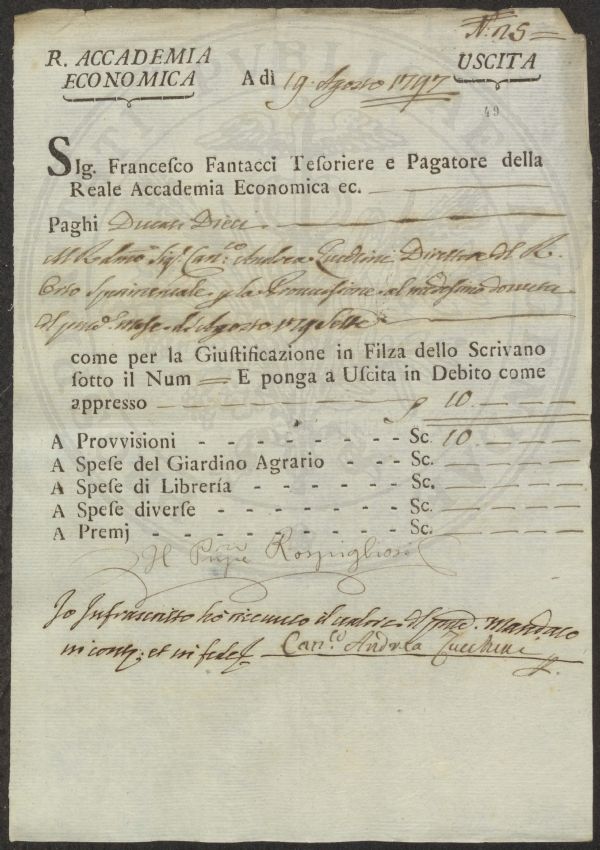 N.° 125
R. ACCADEMIA
ECONOMICA
A dì 19. Agosto 1797
USCITA
49
SIg. Franceſco Fantacci Teſoriere e Pagatore della
Reale Accademia Economica ec.
Paghi Ducati Dieci
Al Rdmo Sigr. Canco. Andrea Zucchini Direttore del R.
Orto Sperimentale p la Provvisione al medesimo dovuta
del mese di Agosto
come per la Giuſtificazione in Filza dello Scrivano
ſotto il Num E ponga a Uſcita in Debito come
appreſſo 10
A Provviſioni - - - - - - - - Sc. 10
A Speſe del Giardino Agrario - - - - Sc.
A Speſe di Librería - - - - - - Sc.
A Speſe diverſe - - - - - - - - Sc.
A Premj - - - - - - - - - - Sc.
Il Rospigliosi
Io Infrascritto ho ricevuto il valore del pnte. Mandato
in cont. et in fede Canco. Andrea Zucchini